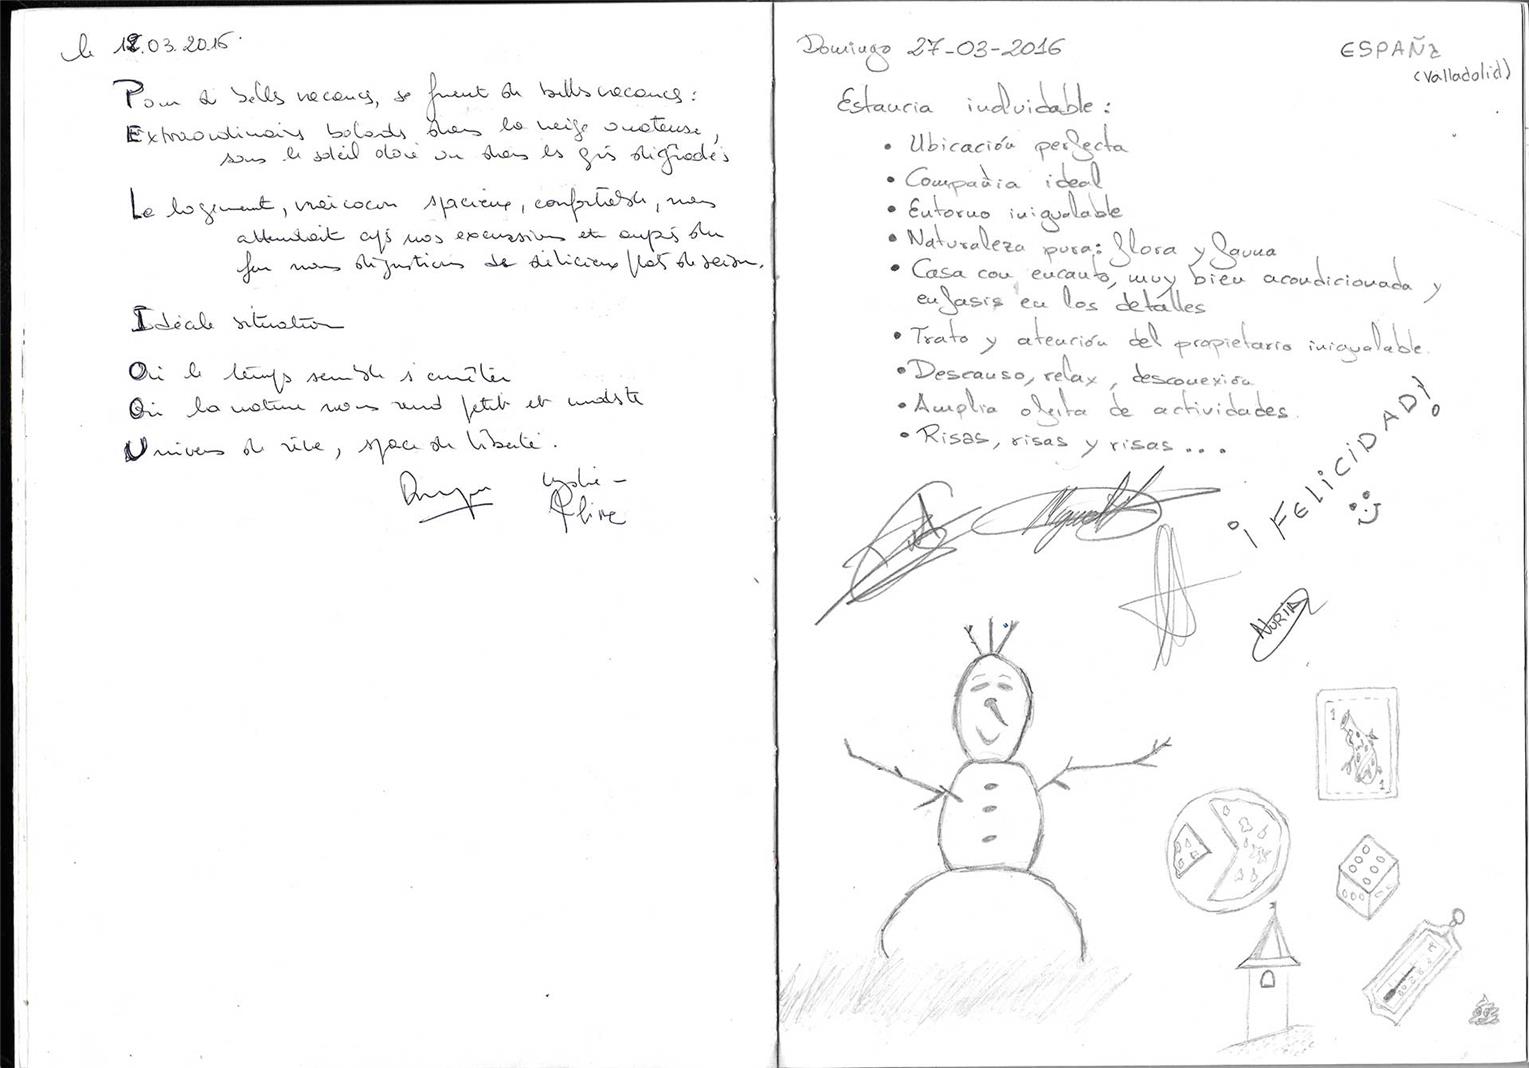 le 12.03.2016.
Pour de belles vacances, ce furent de belles vacances :
Extraordinaires balades dans la neige ouateuse,
sous le soleil doré ou dans les gris dégradés
Le logement, vrai cocon spacieux, confortable, nous
attendait après nos excursions et auprès du
feu nous dégustions de délicieux plats de saison.
Idéale situation
Où le temps semble s'arrêter
Où la nature nous rend petit et modeste
Univers de rêve, space de liberté.
Lydie -
Domingo 27-03-2016
ESPAÑA
(Valladolid)
Estancia inolvidable :
• Ubicación perfecta
• Compañia ideal
• Entorno inigualable
• Naturaleza pura: flora y fauna
• Casa con encanto, muy bien acondicionada y
enfasis en los detalles
• Trato y atención del propietario inigualable.
• Descanso, relax, desconexión
• Amplia oferta de actividades.
• Risas, risas y risas ...
¡FELICIDAD!
NURIA
1
1